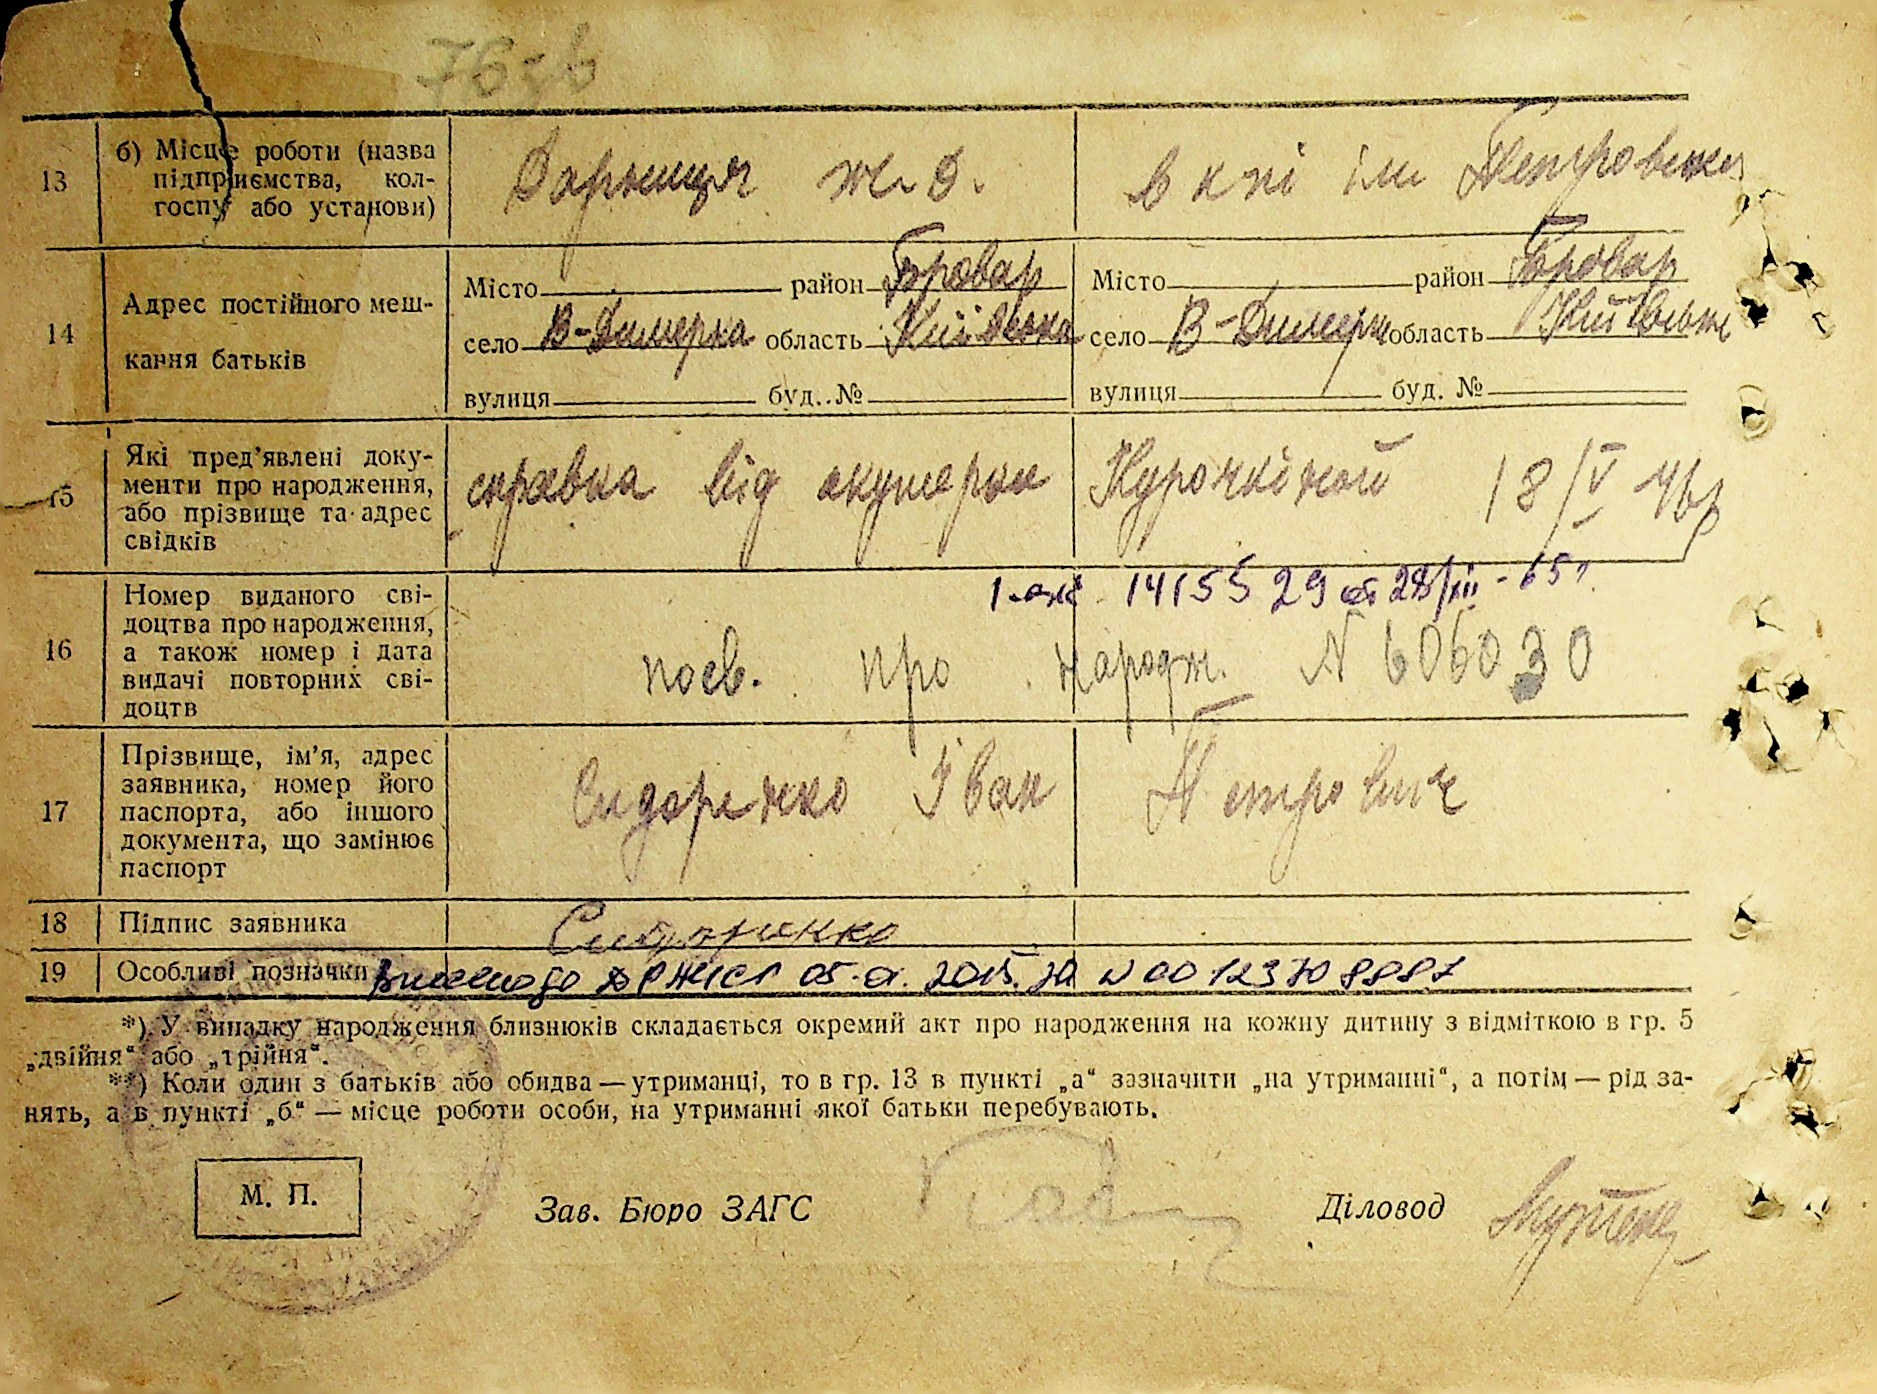 76 зв
13 б) Місце роботи (назва підприємства, колгоспу або установи) Дарниця ж. д. в кпі ім Петровськ
14 Адрес постійного мешкання батьків
Місто район Бровар Місто район Бровар
село В-Димерка область Київська село В-Димерк область Київськ
вулиця буд. № вулиця буд. №
15 Які пред'явлені документи про народження, або прізвище та адрес свідків справка від акушерки Курочкіной 18/V 46р
1-ЖК 1415529 от 28/XII-65г.
16 Номер виданого свідоцтва про народження, а також номер і дата видачі повторних свідоцтв посв. про народж. N 606030
17 Прізвище, ім'я, адрес заявника, номер його паспорта, або іншого документа, що замінює паспорт Сидоренко Іван Петрович
18 Підпис заявника Сидоренко
19 Особливі позначки Внесено до ДРАЦСГ 05.01.2015 за N 00123708987
*) У випадку народження близнюків складається окремий акт про народження на кожну дитину з відміткою в гр. 5
„двійня“ або „трійня“.
**) Коли один з батьків або обидва — утриманці, то в гр. 13 в пункті „а“ зазначити „на утриманні“, а потім — рід за-
нять, а в пункті „б“ — місце роботи особи, на утриманні якої батьки перебувають.
М. П. Зав. Бюро ЗАГС Діловод